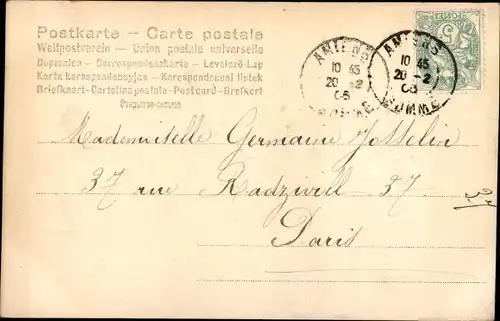 Postkarte - Carte postale
Weltpostverein - Union postale universelle
Dopisnica - Correspondenzkarte - Levelező-Lap
Karta korespondencyjna - Korespondenční lístek
Briefkaart - Cartolina postale - Postcard - Brefkort
AMIENS
10 45
20 - 2
05
SOMME
AMIENS
10 45
20 - 2
05
SOMME
Mademoiselle Germaine Josselin
37 rue Radziwill 37
Paris